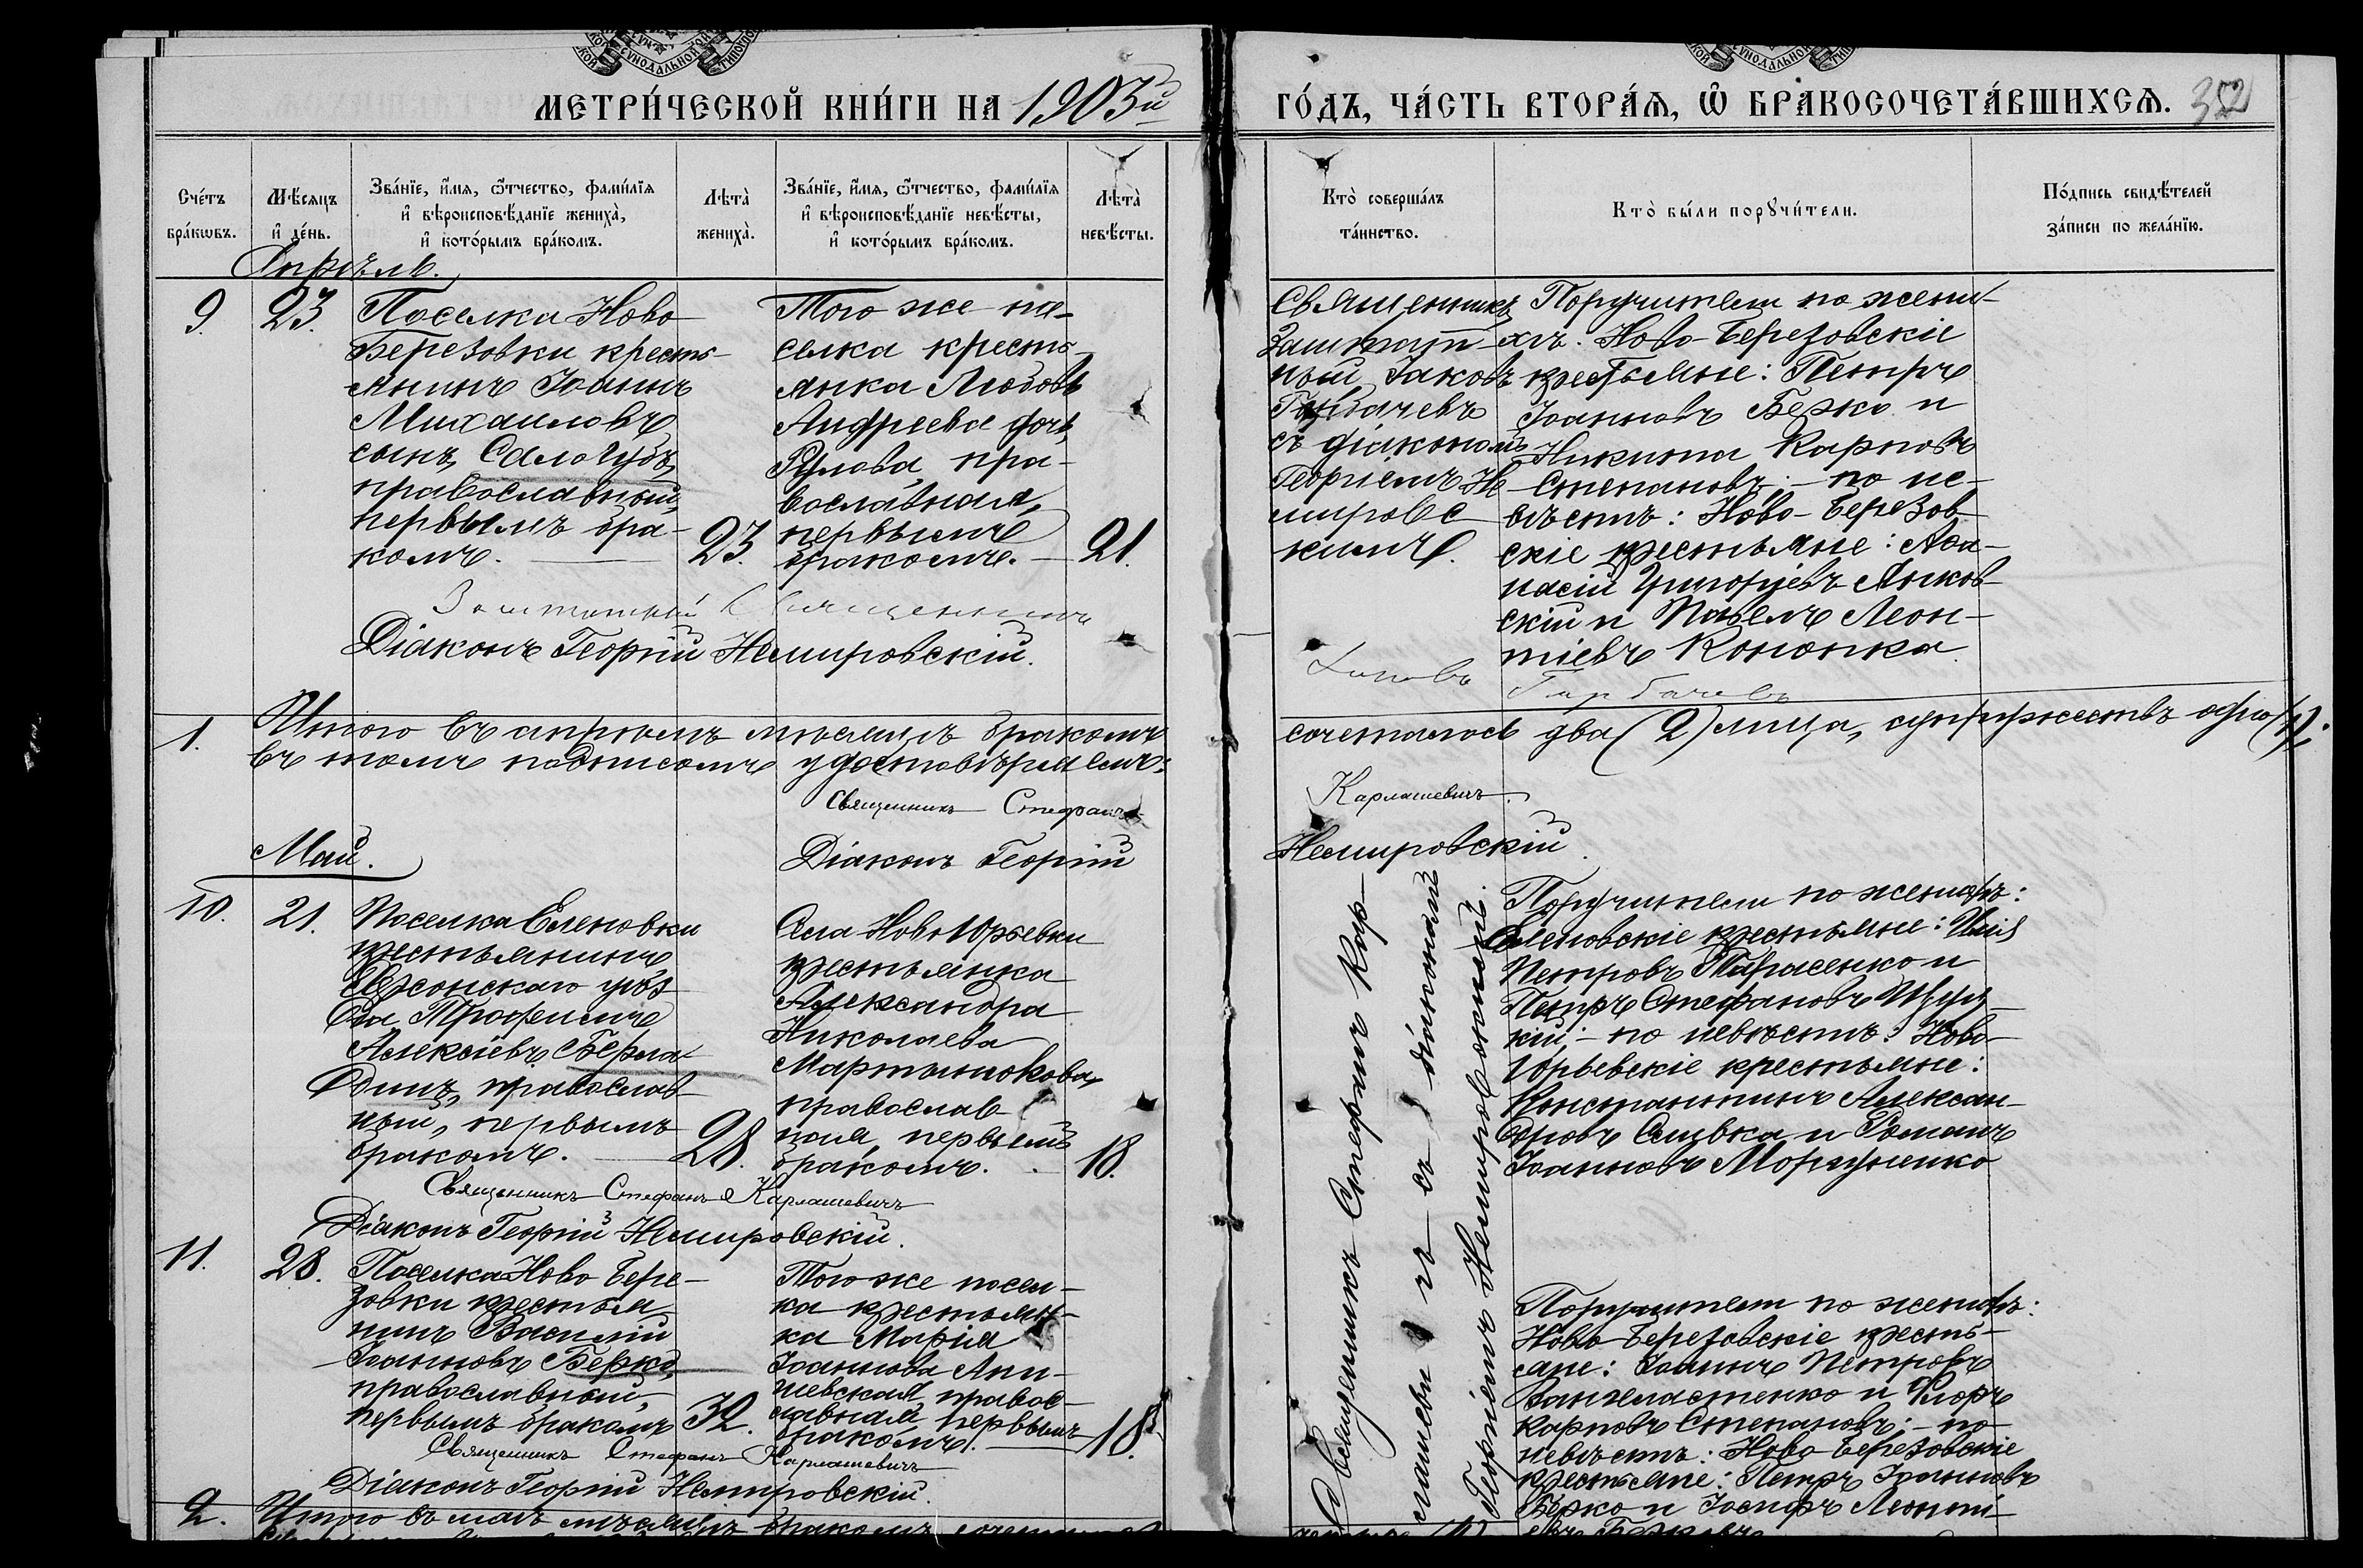 МЕТРИ́ЧЕСКОЙ КНИ́ГИ НА 1903й
ГО́ДЪ, ЧА́СТЬ ВТОРА́Ѧ, Ѽ БРАКОСОЧЕТА́ВШИХСѦ. 352
Сче́тъ бра́кѡвъ.
Мѣ́сяцъ и҆ де́нь.
Зва́нїе, и҆́мя, ѻ҆́тчество, фами́лїя и҆ вѣроисповѣ́данїе жениха̀, и҆ кото́рымъ бра́комъ.
Лѣта̀ жениха̀.
Зва́нїе, и҆́мя, ѻ҆́тчество, фами́лїя и҆ вѣроисповѣ́данїе невѣ́сты, и҆ кото́рымъ бра́комъ.
Лѣта̀ невѣ́сты.
Кто̀ соверша́лъ та́инство.
Кто̀ бы́ли порꙋчи́тели.
По́дпись свидѣ́телей за́писи по жела́нїю.
Апрѣль.
9.
23.
Поселка Ново
Березовки кресть-
янинъ Іоаннъ
Михаиловъ
сынъ Салогубъ,
православный,
первымъ бра-
комъ.
23.
Того же по-
селка кресть-
янка Любовь
Андреева дочь
православная,
первымъ
бракомъ.
21.
Священникъ
Заштат-
ный Іаковъ
Горбачевъ
съ діакономъ
Георгіемъ Не-
мировс-
кимъ.
Поручители по жени-
хѣ: Ново-Березовскіе
крестьяне: Петръ
Іоанновъ Берко и
Никита Карповъ
Степановъ; - по не-
вѣстѣ: Ново-Березов-
скіе крестьяне: Афа-
насій Григорьевъ Янков-
скій и Павелъ Леон-
тіевъ Кононка.
Заштатный Священникъ
Іаковъ Горбачевъ
Діаконъ Георгій Немировскій.
1.
Итого въ апрѣлѣ мѣсяцѣ бракомъ
сочеталось два (2) лица, супружествъ одно (1);
въ томъ подписомъ удостовѣряемъ:
Священникъ Стефанъ
Карлашевичъ.
Діаконъ Георгій
Немировскій.
Май.
10.
21.
Поселка Еленовки
крестьянинъ
Херсонскаго уѣз-
да Трофимъ
Алексіевъ Берла-
динъ, православ-
ный, первымъ
бракомъ.
28.
Села Ново Юрьевки
крестьянка
Александра
Николаева
Мартынюкова,
православ-
ная, первымъ
бракомъ.
18.
Священникъ Стефанъ Кар-
лашевичъ съ діакономъ
Георгіемъ Немировскимъ.
Поручители по женихѣ:
Еленовскіе крестьяне:
Петровъ Тарасенко и
Петръ Стефановъ
кій; - по невѣстѣ: Ново-
Юрьевскіе крестьяне:
Константинъ Алексан-
дровъ Сливка и Романъ
Іоанновъ
Священникъ Стефанъ Карлашевичъ
Діаконъ Георгій Немировскій.
11.
28.
Поселка Ново Бере-
зовки крестья-
нинъ Василій
Іоанновъ Берко,
православный,
первымъ бракомъ
32.
Того же посел-
ка крестьян-
ка Марія
Іоаннова
правос-
лавная, первымъ
бракомъ.
18.
Поручители по женихѣ:
Ново-Березовскіе кресть-
яне: Іоаннъ Петровъ
и Флоръ
Карповъ Степановъ; - по
невѣстѣ: Ново-Березовскіе
крестьяне: Петръ Іоанновъ
Берко и Іосифъ Леонті-
Священникъ Стефанъ Карлашевичъ
Діаконъ Георгій Немировскій.
2.
Итого въ маѣ мѣсяцѣ бракомъ